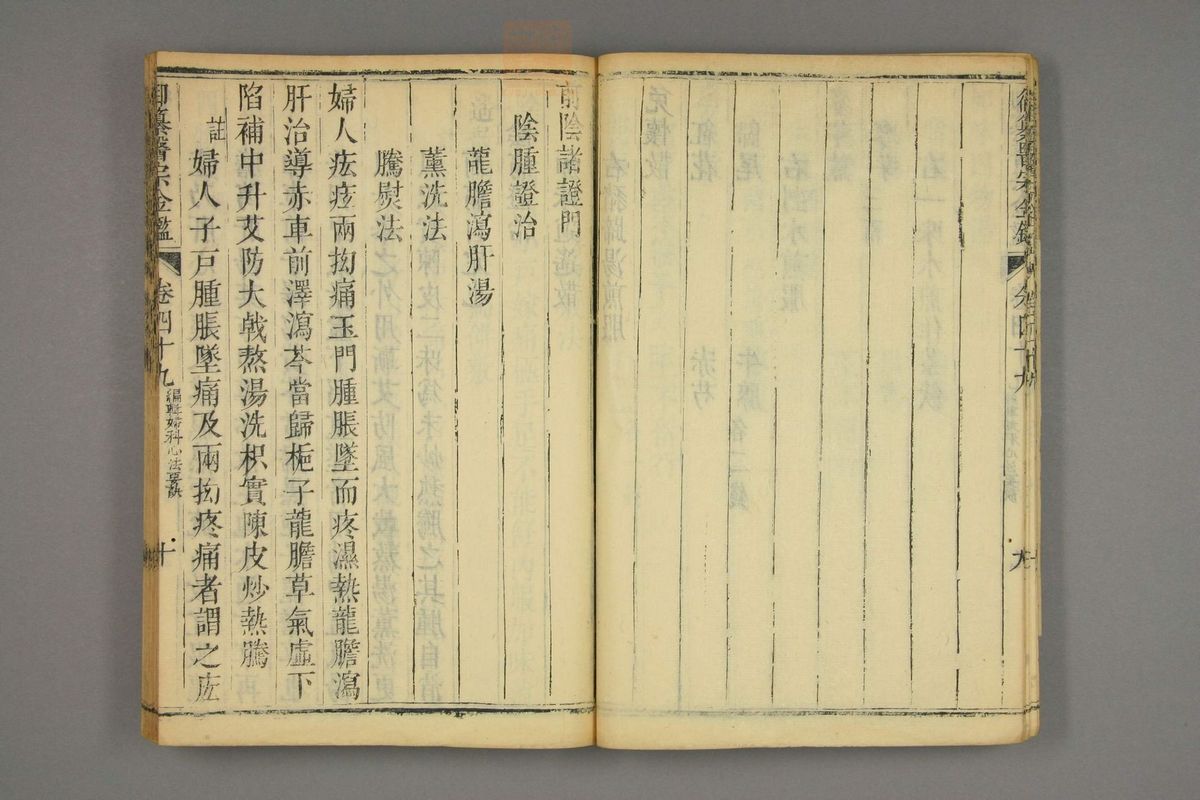 御纂醫宗金鑑 卷四十九 九
前陰諸證門
陰腫證治
龍膽瀉肝湯
薰洗法
騰熨法
婦人㽱㽱兩拗痛玉門腫脹墜而疼濕熱龍膽瀉
肝治導赤車前澤瀉芩當歸梔子龍膽草氣虛下
陷補中升艾防大戟熬湯洗枳實陳皮炒熱騰
註
婦人子戸腫脹墜痛及兩拗疼痛者謂之
御纂醫宗金鑑 卷四十九 編輯婦科心法要訣 十